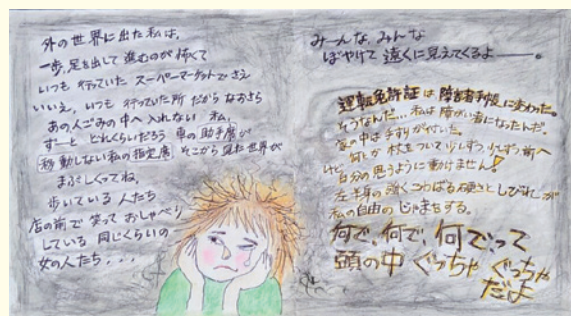 外の世界に出た私は、
一歩、足を出して進むのが怖くて
いつも行っていたスーパーマーケットでさえ
いいえ、いつも行っていた所だからなおさら
あの人ごみの中へ入れない私、
ずーっとどれくらいだろう 車の助手席が
移動しない私の指定席 そこから見た世界が
まぶしくってね、
歩いている人たち
店の前で笑っておしゃべり
している 同じくらいの
女の人たち...
みーんな、みんな
ぼやけて遠くに見えてくるよ――。
運転免許証は障害者手帳に変わった。
そうなんだ...私は障がい者になったんだ。
家の中は手すりが付いた。
杖をついて少しずつ、少しずつ前へ
けど自分の思うように動けません!
左半身の強くこわばる硬さとしびれ、が
私の自由のじゃまをする。
何で、何で、何でって
頭の中ぐっちゃぐっちゃ
だよ